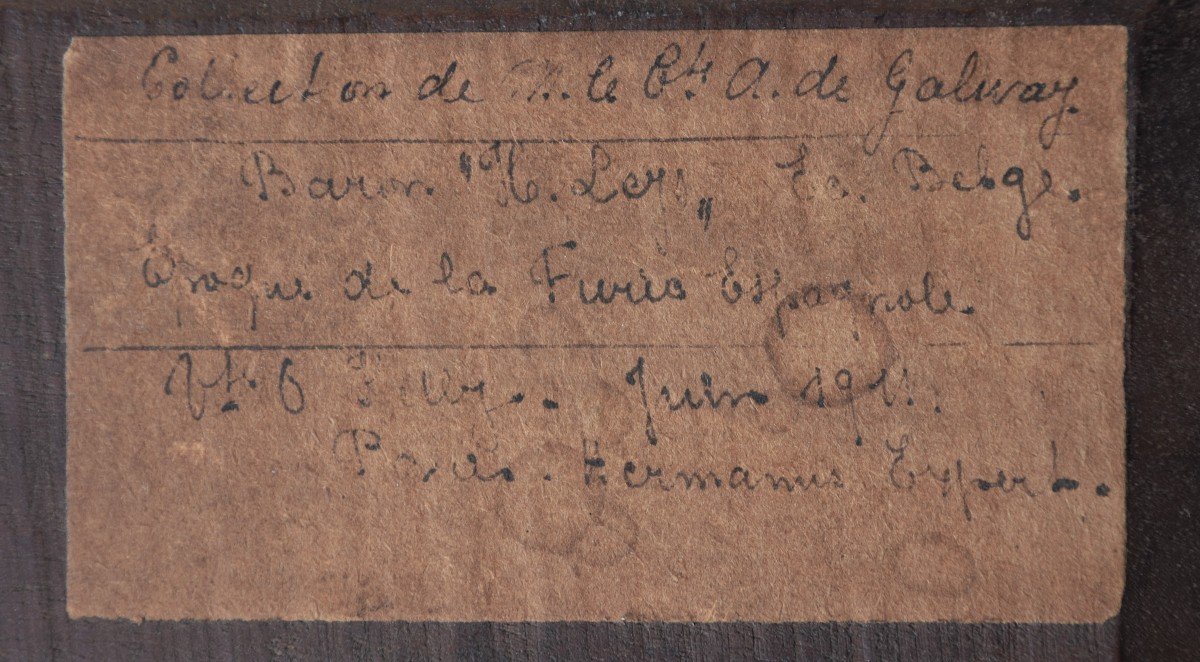 Collection de M. le Cte A. de Galway.
Baron "H. Leys„ Ec. Belge.
Epoque de la Furie Espagnole.
Vte Juin 1911.
Paris. Hermanus Expert.